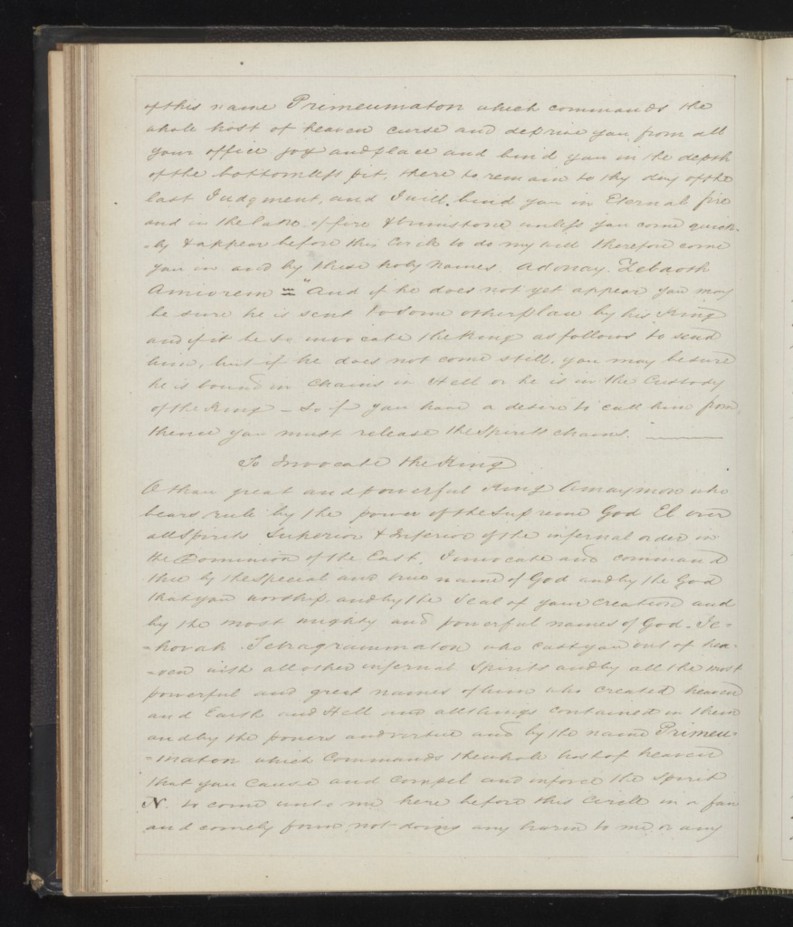 of this name Primeumaton which commands the
whole host of heaven curse and deprive you from all
your office joy and place and bind you in the depth
of the bottomless pit, there to remain to thy day of the
last Judgment, and I will bind you in Eternal fire
and in the lake of fire & brimstone unless you come quick-
-ly & appear before this Circle to do my will therefore come
you in and by these holy Names Adonay. Zebaoth
Amiorem = " And if he does not yet appear you may
be sure he is sent to some other place by his King
and if it be so invocate the King as follows to send
him, but if he does not come still, you may be sure
he is bound in chains in Hell or he is in the Custody
of the King — So if you have a desire to call him from
thence you must release the Spirits chains.
To Invocate the King
O thou great and powerful King Amaymon who
bears rule by the power of the Supreme God El over
all Spirits Superior & Inferior of the infernal order in
the Dominion of the East, I invocate and command
thee by the Special and true name of God and by the God
that you worship, and by the Seal of your Creation and
by the most mighty and powerful names of God - Je-
-hovah. Tetragrammaton who cast you out of hea-
-ven with all other infernal Spirits and by all the most
powerful and great names of him who created heaven
and Earth and Hell and all things contained in them
and by the powers and virtue and by the name Primeu-
-maton which Commands the whole host of heaven
that you Cause and Compel and inforce the Spirit
N. to come unto me here before this Circle in a fair
and comely form, not doing any harm to me or any